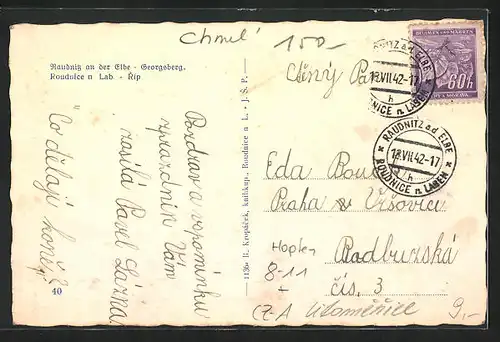 Chmel
150-
Raudnitz an der Elbe - Georgsberg.
Roudnice n Lab - Říp
BÖHMEN UND MÄHREN
60h
RAUDNITZ a.d. ELBE
18.VII.42-17
h
ROUDNICE n. LABEM
RAUDNITZ a.d. ELBE
18.VII.42-17
h
ROUDNICE n. LABEM
Ctěný Pan
Eda
Praha Vršovice
Radbuzská
čís. 3
Hopfen
8-11
+
9,-
Pozdrav a vzpomínku
z prázdnin Vám
zasílá Pavel
"Co dělají koně?"
40
1130 R. Kropáček, knihkup., Roudnice n. L. - J. S. P.